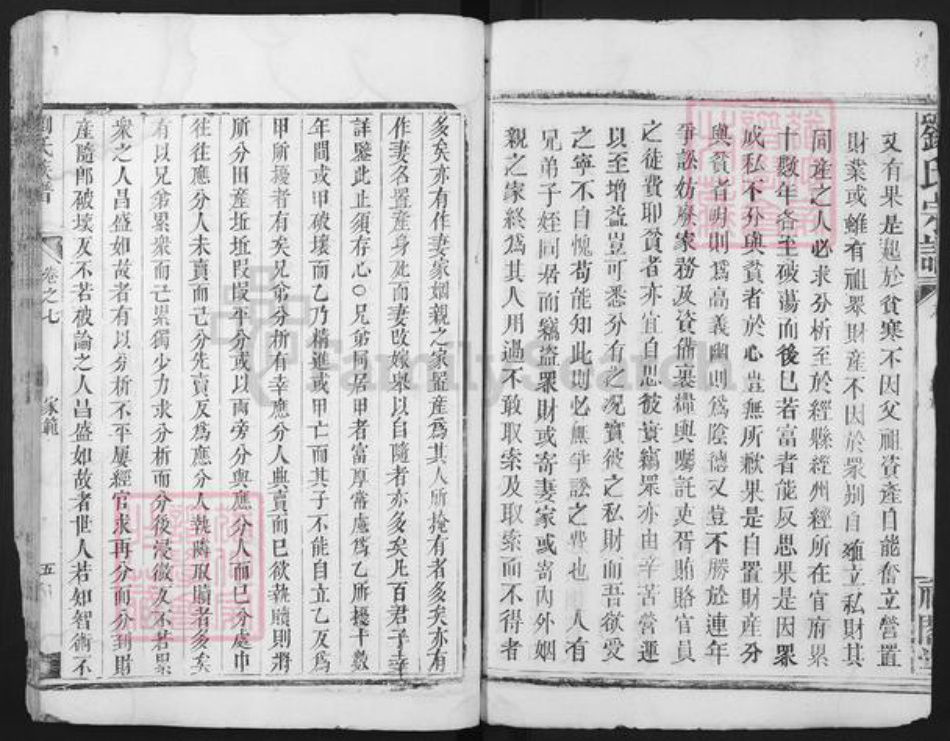 劉氏宗譜
又有果是起於貧寒不因父祖資產自能奮立營置
財業或雖有祖眾財產不因於眾別自殖立私財其
同產之人必求分析至於經縣經州經所在官府累
十數年各至破蕩而後已若富者能反思果是因眾
成私不分與貧者於心豈無所歉果是自置財產分
與貧者明則為高義幽則為陰德又豈不勝於連年
爭訟妨廢家務及資備裹糧與囑託吏胥賄賂官員
之徒費耶貧者亦宜自思彼實竊眾亦由辛苦營運
以至增益豈可悉分有之況實彼之私財而吾欲受
之寧不自愧苟能知此則必無爭訟之費也 人有
兄弟子姪同居而竊盜眾財或寄妻家或寄內外姻
親之家終為其人用過不敢取索及取索而不得者
多矣亦有作妻家姻親之家置產為其人所掩有者多矣亦有
作妻名置產身死而妻改嫁舉以自隨者亦多矣凡百君子幸
詳鑒此止須存心○兄弟同居甲者富厚常慮為乙所擾十數
年間或甲破壞而乙乃精進或甲亡而其子不能自立乙反為
甲所擾者有矣兄弟分析有幸應分人典賣而已欲執贖則將
所分田產坵坵段段平分或以兩旁分與應分人而已分處中
往往應分人未賣而己分先賣反為應分人執隣取贖者多矣
有以兄弟累眾而己累獨少力求分析而分後浸微反不若累
眾之人昌盛如故者有以分析不平屢經官求再分而分到財
產隨即破壞反不若被論之人昌盛如故者世人若知智術不
劉氏族譜
卷之七
家範
五